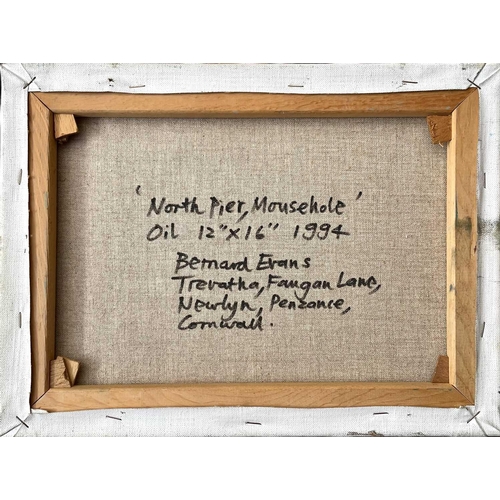 'North Pier, Mousehole'
Oil 12"x16" 1994
Bernard Evans
Trevatha, Faugan Lane,
Newlyn, Penzance,
Cornwall.